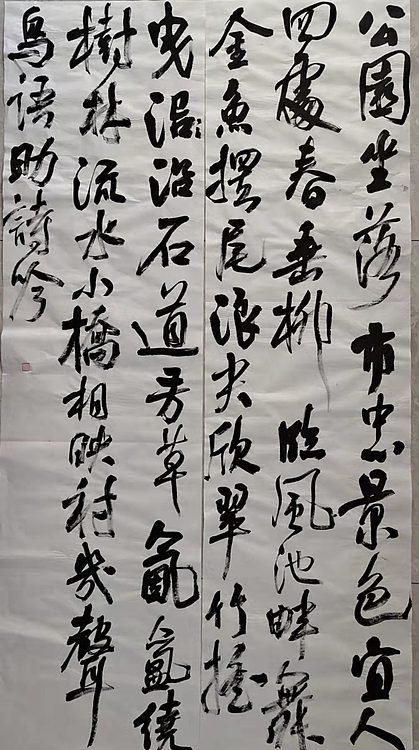 公園坐落市中心景色宜人
四處春垂柳臨風池畔舞
金魚擺尾浪尖欣翠竹搖
曳沿石道芳草氤氳繞
樹林流水小橋相映衬幾聲
鳥語助詩吟